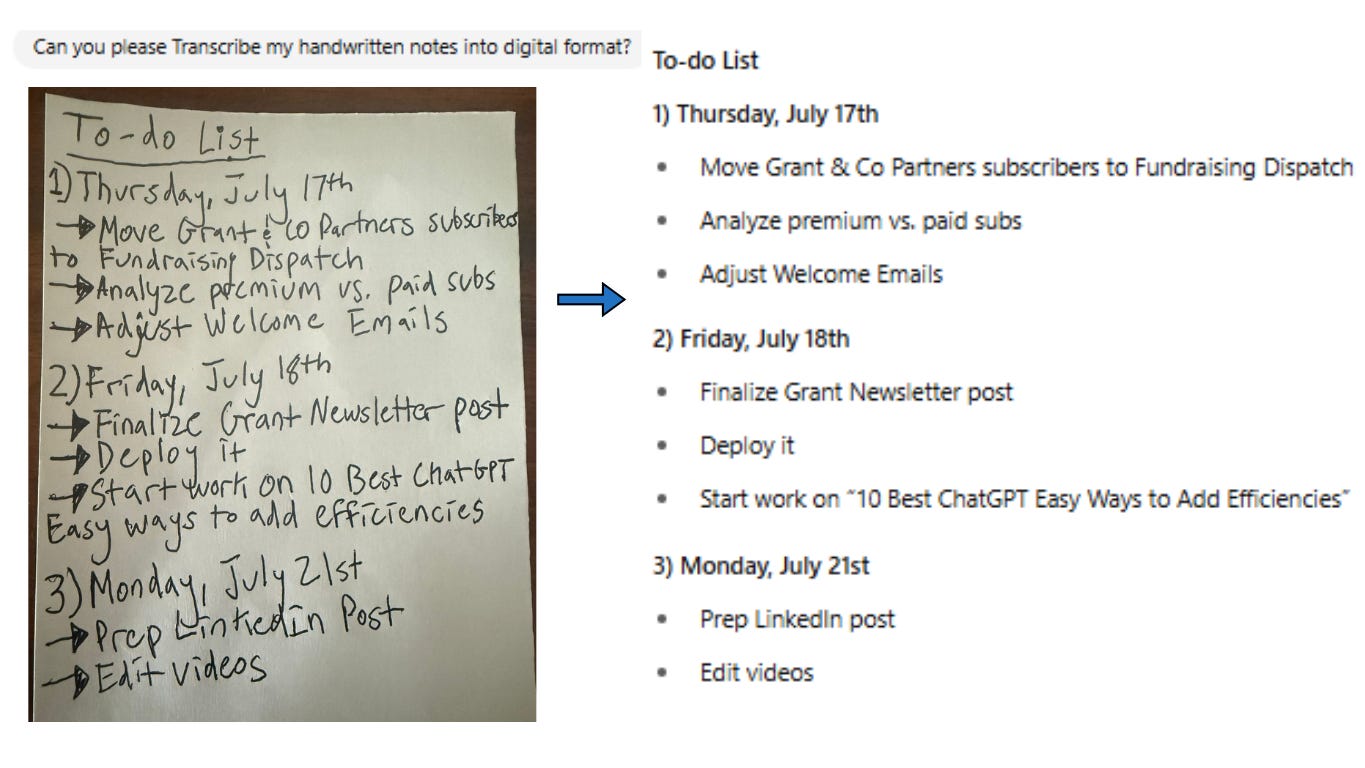 Can you please Transcribe my handwritten notes into digital format?
To-do List
1) Thursday, July 17th
Move Grant & Co Partners subscribers
to Fundraising Dispatch
Analyze premium vs. paid subs
Adjust Welcome Emails
2) Friday, July 18th
Finalize Grant Newsletter post
Deploy it
Start work on 10 Best ChatGPT
Easy ways to add efficiencies
3) Monday, July 21st
Prep LinkedIn Post
Edit videos
To-do List
1) Thursday, July 17th
Move Grant & Co Partners subscribers to Fundraising Dispatch
Analyze premium vs. paid subs
Adjust Welcome Emails
2) Friday, July 18th
Finalize Grant Newsletter post
Deploy it
Start work on "10 Best ChatGPT Easy Ways to Add Efficiencies"
3) Monday, July 21st
Prep LinkedIn post
Edit videos